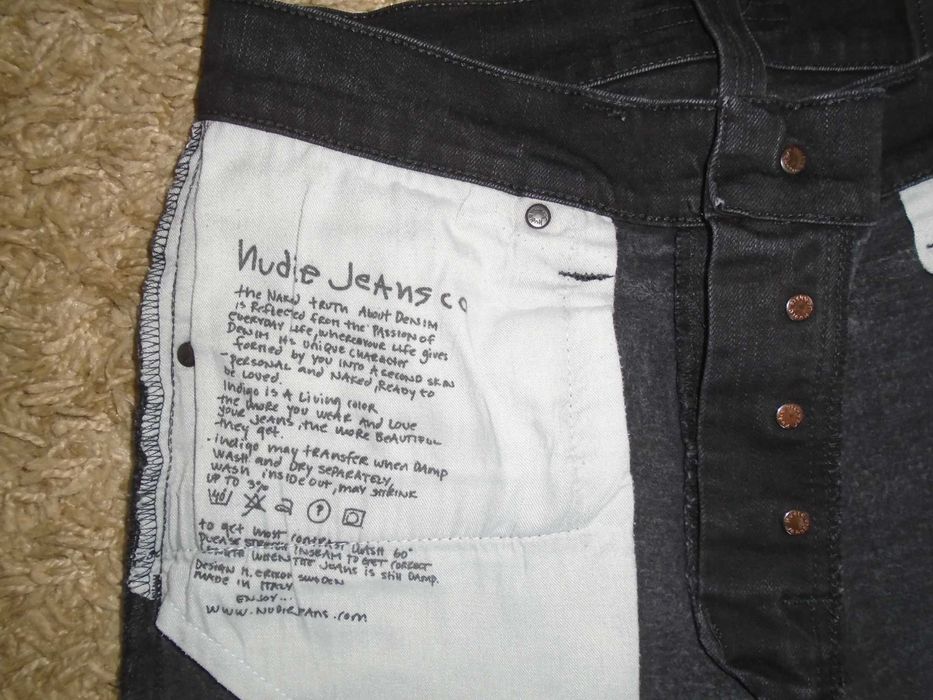 Nudie Jeans co
the NAKED TRUTH ABOUT DENIM
is Reflected from the PASSION of
EVERYDAY Life, WHEREAVOUR Life gives
DENIM it's UNIQUE CHARACTER
formed by YOU INTO A SECOND SKIN
- PERSONAL and NAKED, READY to
be LOVED.
Indigo is A Living color
the MORE YOU WEAR AND LOVE
YOUR JEANS, the MORE BEAUTIFUL
they get.
- indigo may TRANSFER when DAMP
WASH and DRY SEPARATELY,
WASH inside out, may SHRINK
UP TO 3%
40
to get MOST CONTRAST WASH 60°
PLEASE STRETCH INSEAM TO GET CORRECT
LENGTH WHEN THE JEANS is still DAMP.
DESIGN M. ERIXON SWEDEN
MADE IN ITALY
ENJOY...
WWW.NUDIEJEANS.COM